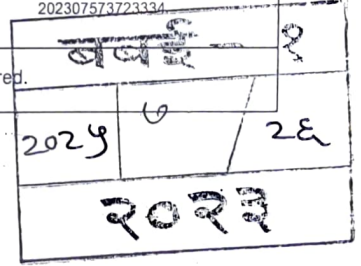 202307573723334
बबई - १
red.
२०२५ ७ / २६
२०२३